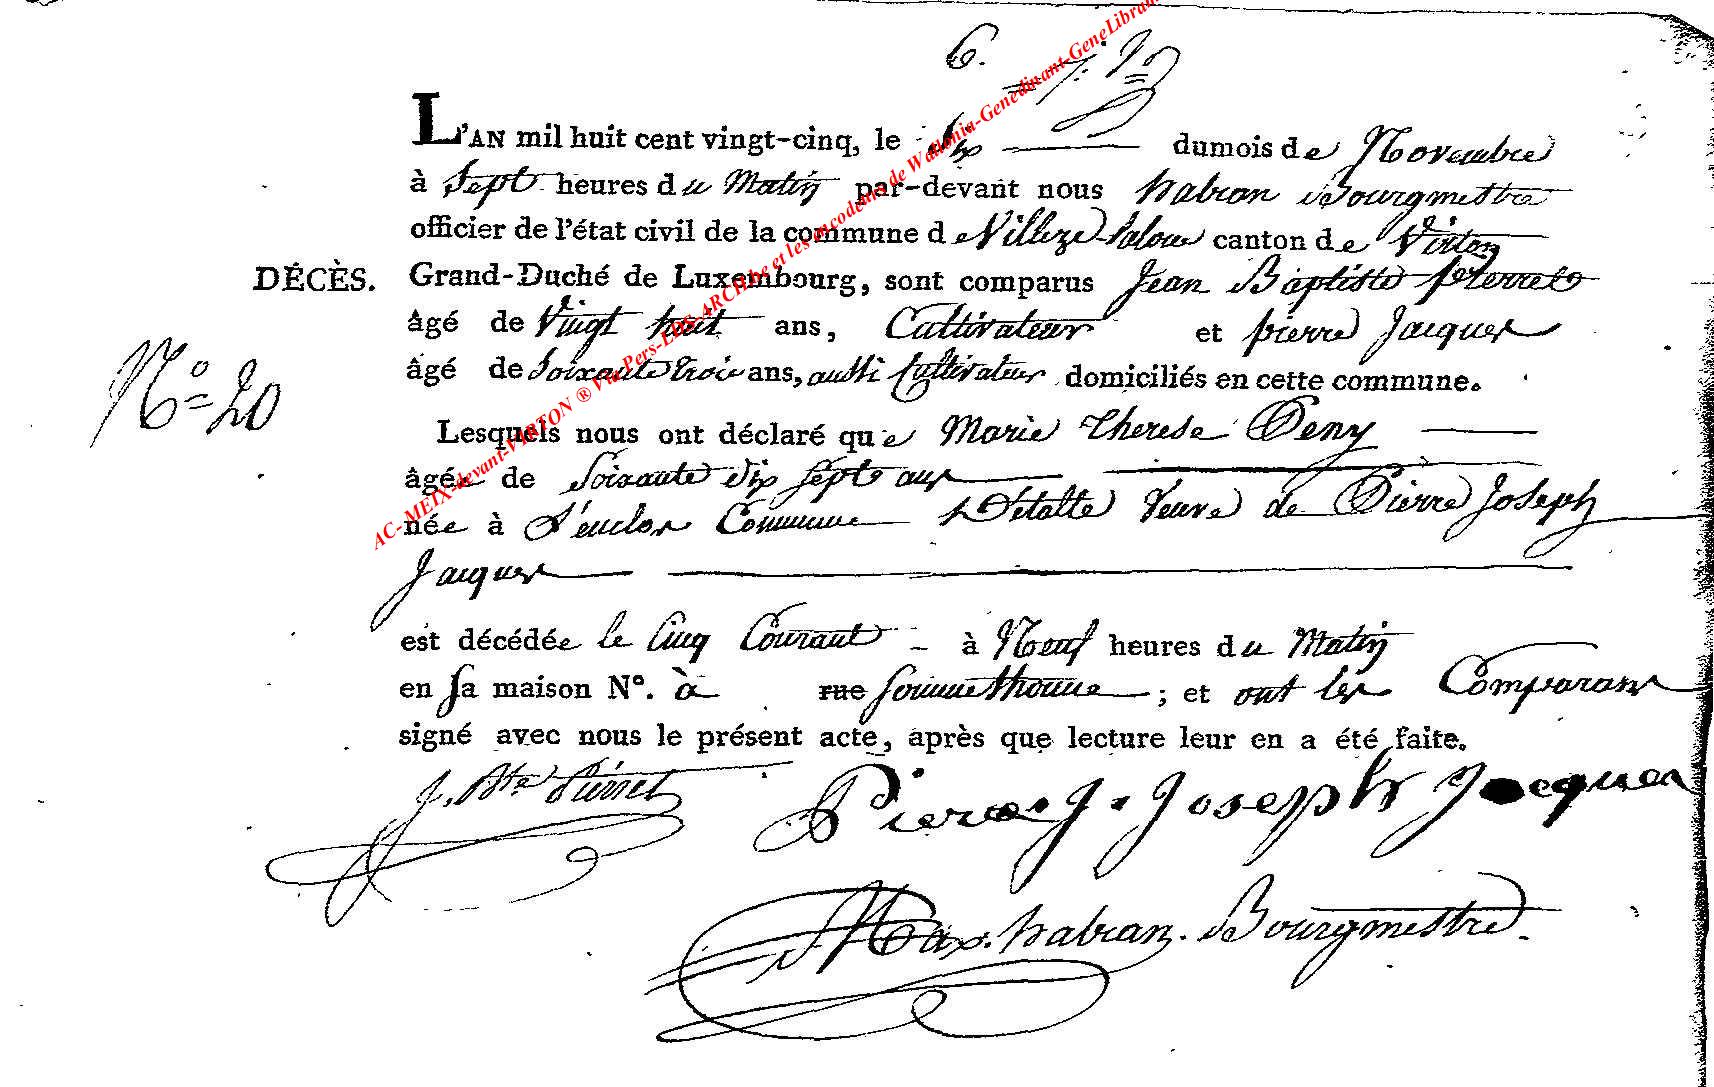 6.
L'AN mil huit cent vingt-cinq, le Six dumois de Novembre
à Sept heures du Matin par-devant nous habran Bourgmestre
officier de l'état civil de la commune de Villers-laloue canton de Virton
DÉCÈS. Grand-Duché de Luxembourg, sont comparus Jean Baptiste Pierret
âgé de Vingt huit ans, Cultivateur et pierre Jacques
N° 20
âgé de Soixante trois ans, aussi Cultivateur domiciliés en cette commune.
Lesquels nous ont déclaré que Marie Therese Deny
âgée de Soixante dix sept ans
née à l'enclos Commune D'étalle Veuve de Pierre Joseph
Jacques
est décédée le Cinq Courant à Neuf heures du Matin
en sa maison N°. à rue Sommethonne ; et ont les Comparans
signé avec nous le présent acte, après que lecture leur en a été faite.
J. Bte Pierret Piere. J. Joseph Jacques
Max. habran. Bourgmestre.
AC-MEIX-devant-VIRTON ® Via Pers-LUX-ARCHIbe et les encodeurs de Wallonia-Genedinant-GeneLibram